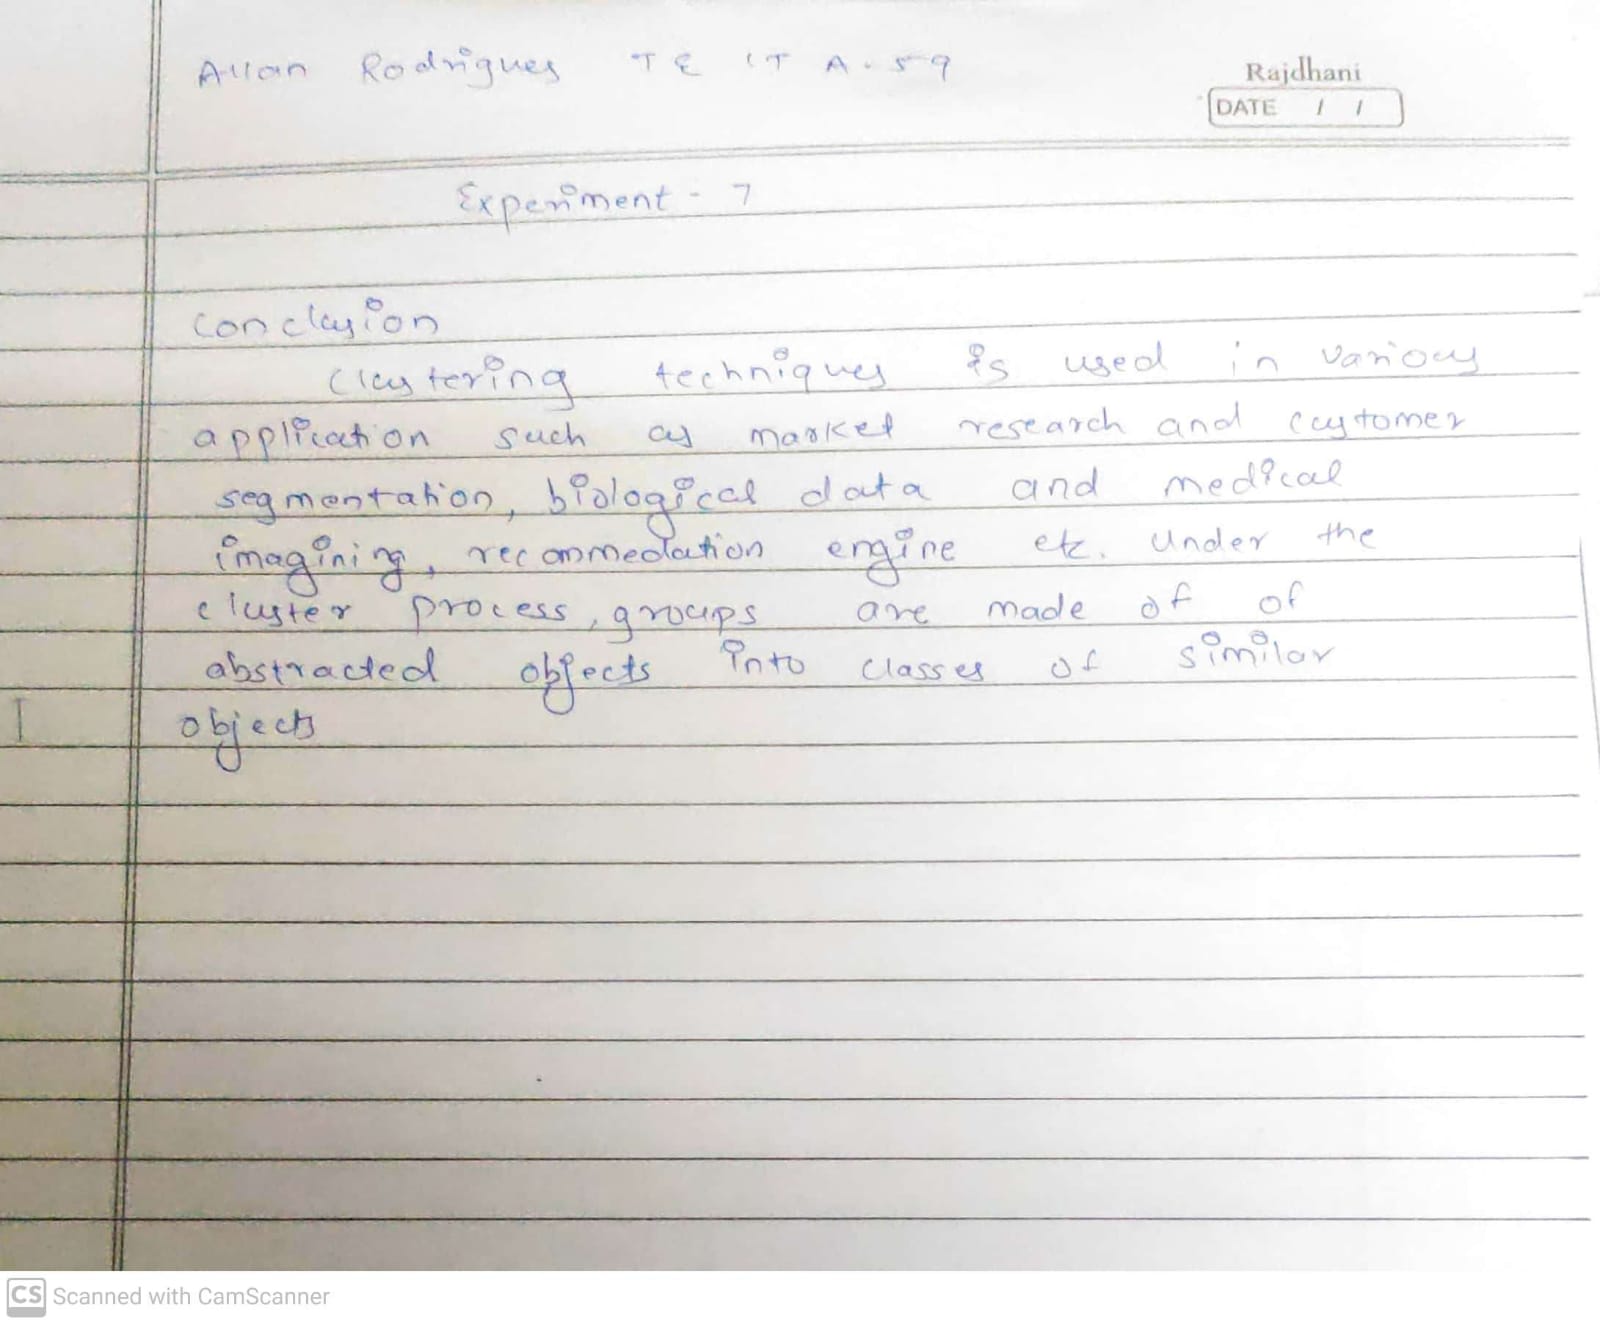 Allan Rodrigues TE IT A-59
Rajdhani
DATE / /
Experiment - 7
Conclusion
Clustering techniques is used in various
application such as market research and customer
segmentation, biological data and medical
imagining, recommedation engine etc. Under the
cluster process, groups are made of of
abstracted objects into classes of similar
objects
CS Scanned with CamScanner